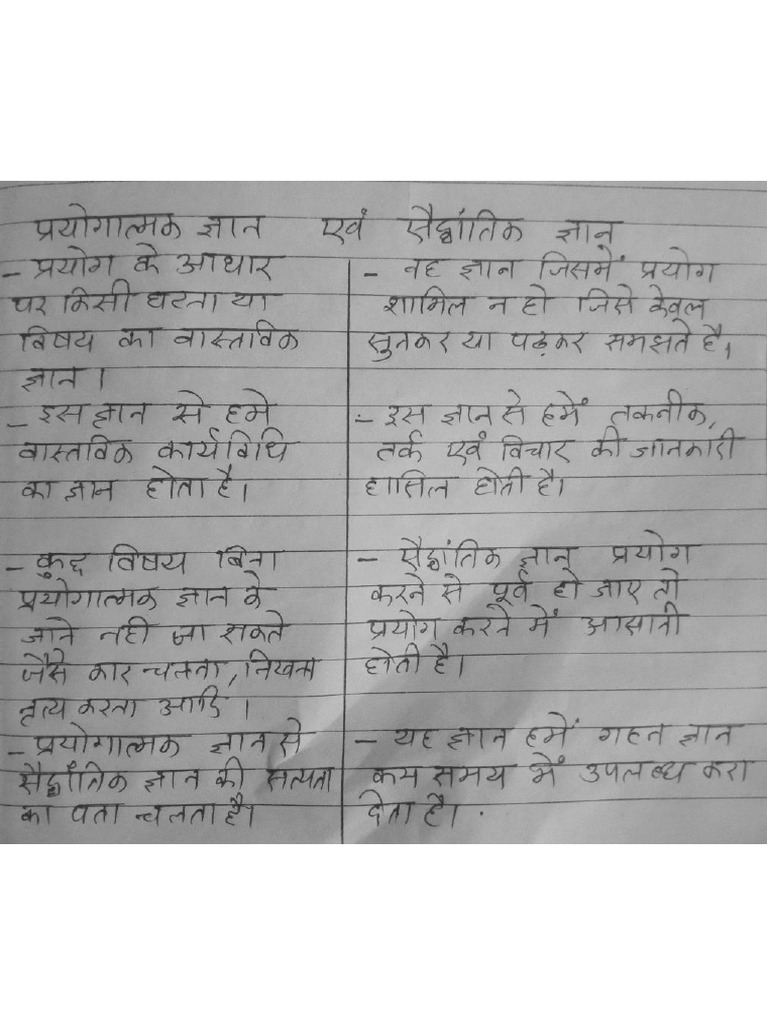 प्रयोगात्मक ज्ञान एवं सैद्धांतिक ज्ञान
- प्रयोग के आधार
पर किसी घटना या
विषय का वास्तविक
ज्ञान ।
- इस ज्ञान से हमे
वास्तविक कार्यविधि
का ज्ञान होता है।
- कुछ विषय बिना
प्रयोगात्मक ज्ञान के
जाने नही जा सकते
जैसे कार चलना, लिखना
नृत्य करना आदि ।
- प्रयोगात्मक ज्ञान से
सैद्धांतिक ज्ञान की सत्यता
का पता चलता है।
- वह ज्ञान जिसमें प्रयोग
शामिल न हो जिसे केवल
सुनकर या पढ़कर समझते है।
- इस ज्ञान से हमें तकनीक,
तर्क एवं विचार की जानकारी
हासिल होती है।
- सैद्धांतिक ज्ञान प्रयोग
करने से पूर्व हो जाए तो
प्रयोग करने में आसानी
होती है।
- यह ज्ञान हमें गहन ज्ञान
कम समय में उपलब्ध करा
देता है।